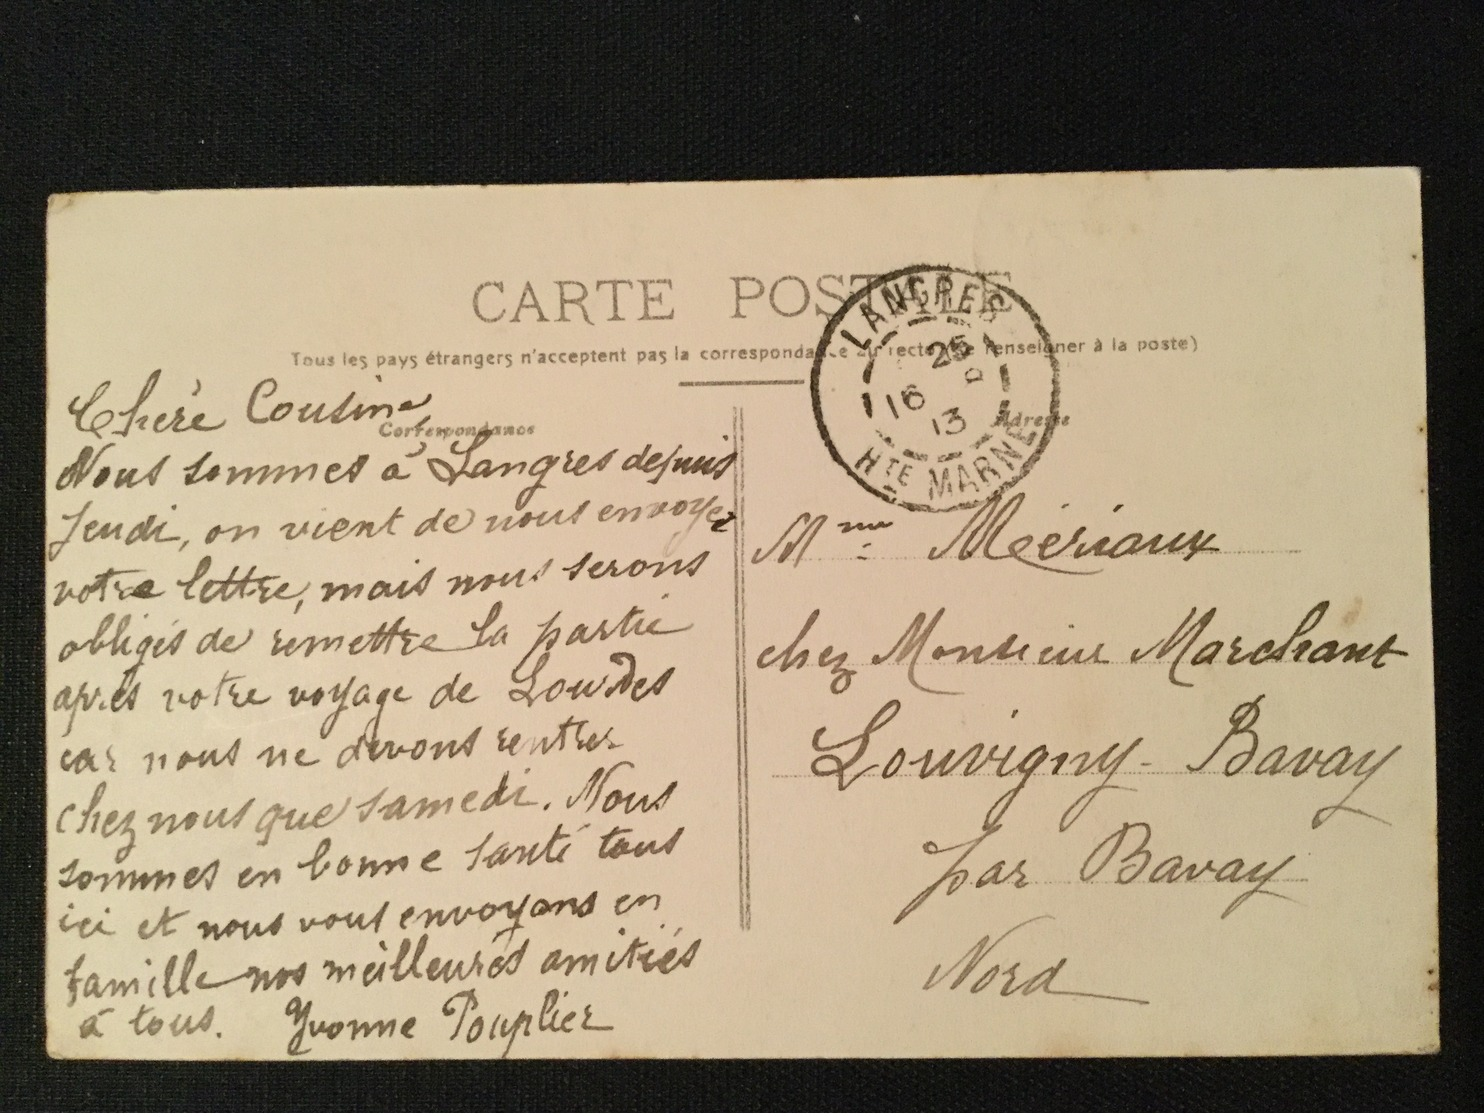 CARTE POSTALE
Tous les pays étrangers n'acceptent pas la correspondance au recto (se renseigner à la poste)
LANGRES
25
D
16
13
HTE MARNE
Correspondance
Adresse
Chère Cousine,
Nous sommes à Langres depuis
jeudi, on vient de nous envoyer
votre lettre, mais nous serons
obligés de remettre la partie
après votre voyage de Lourdes
car nous ne devons rentrer
chez nous que samedi. Nous
sommes en bonne santé tous
ici et nous vous envoyons en
famille nos meilleures amitiés
à tous. Yvonne Pouplier
Mme Mériaux
chez Monsieur Marchant
Louvigny-Bavay
par Bavay
Nord